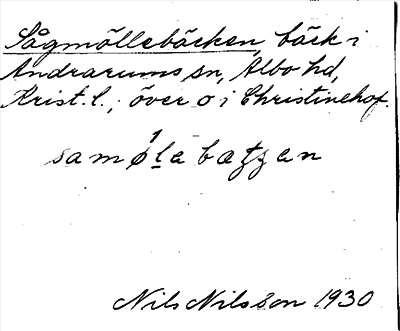 Sågmöllebäcken, bäck i
Andrarums sn, Albo hd,
Krist. l., över o i Christinehof.
samø̍la bæʒʒan
Nils Nilsson 1930